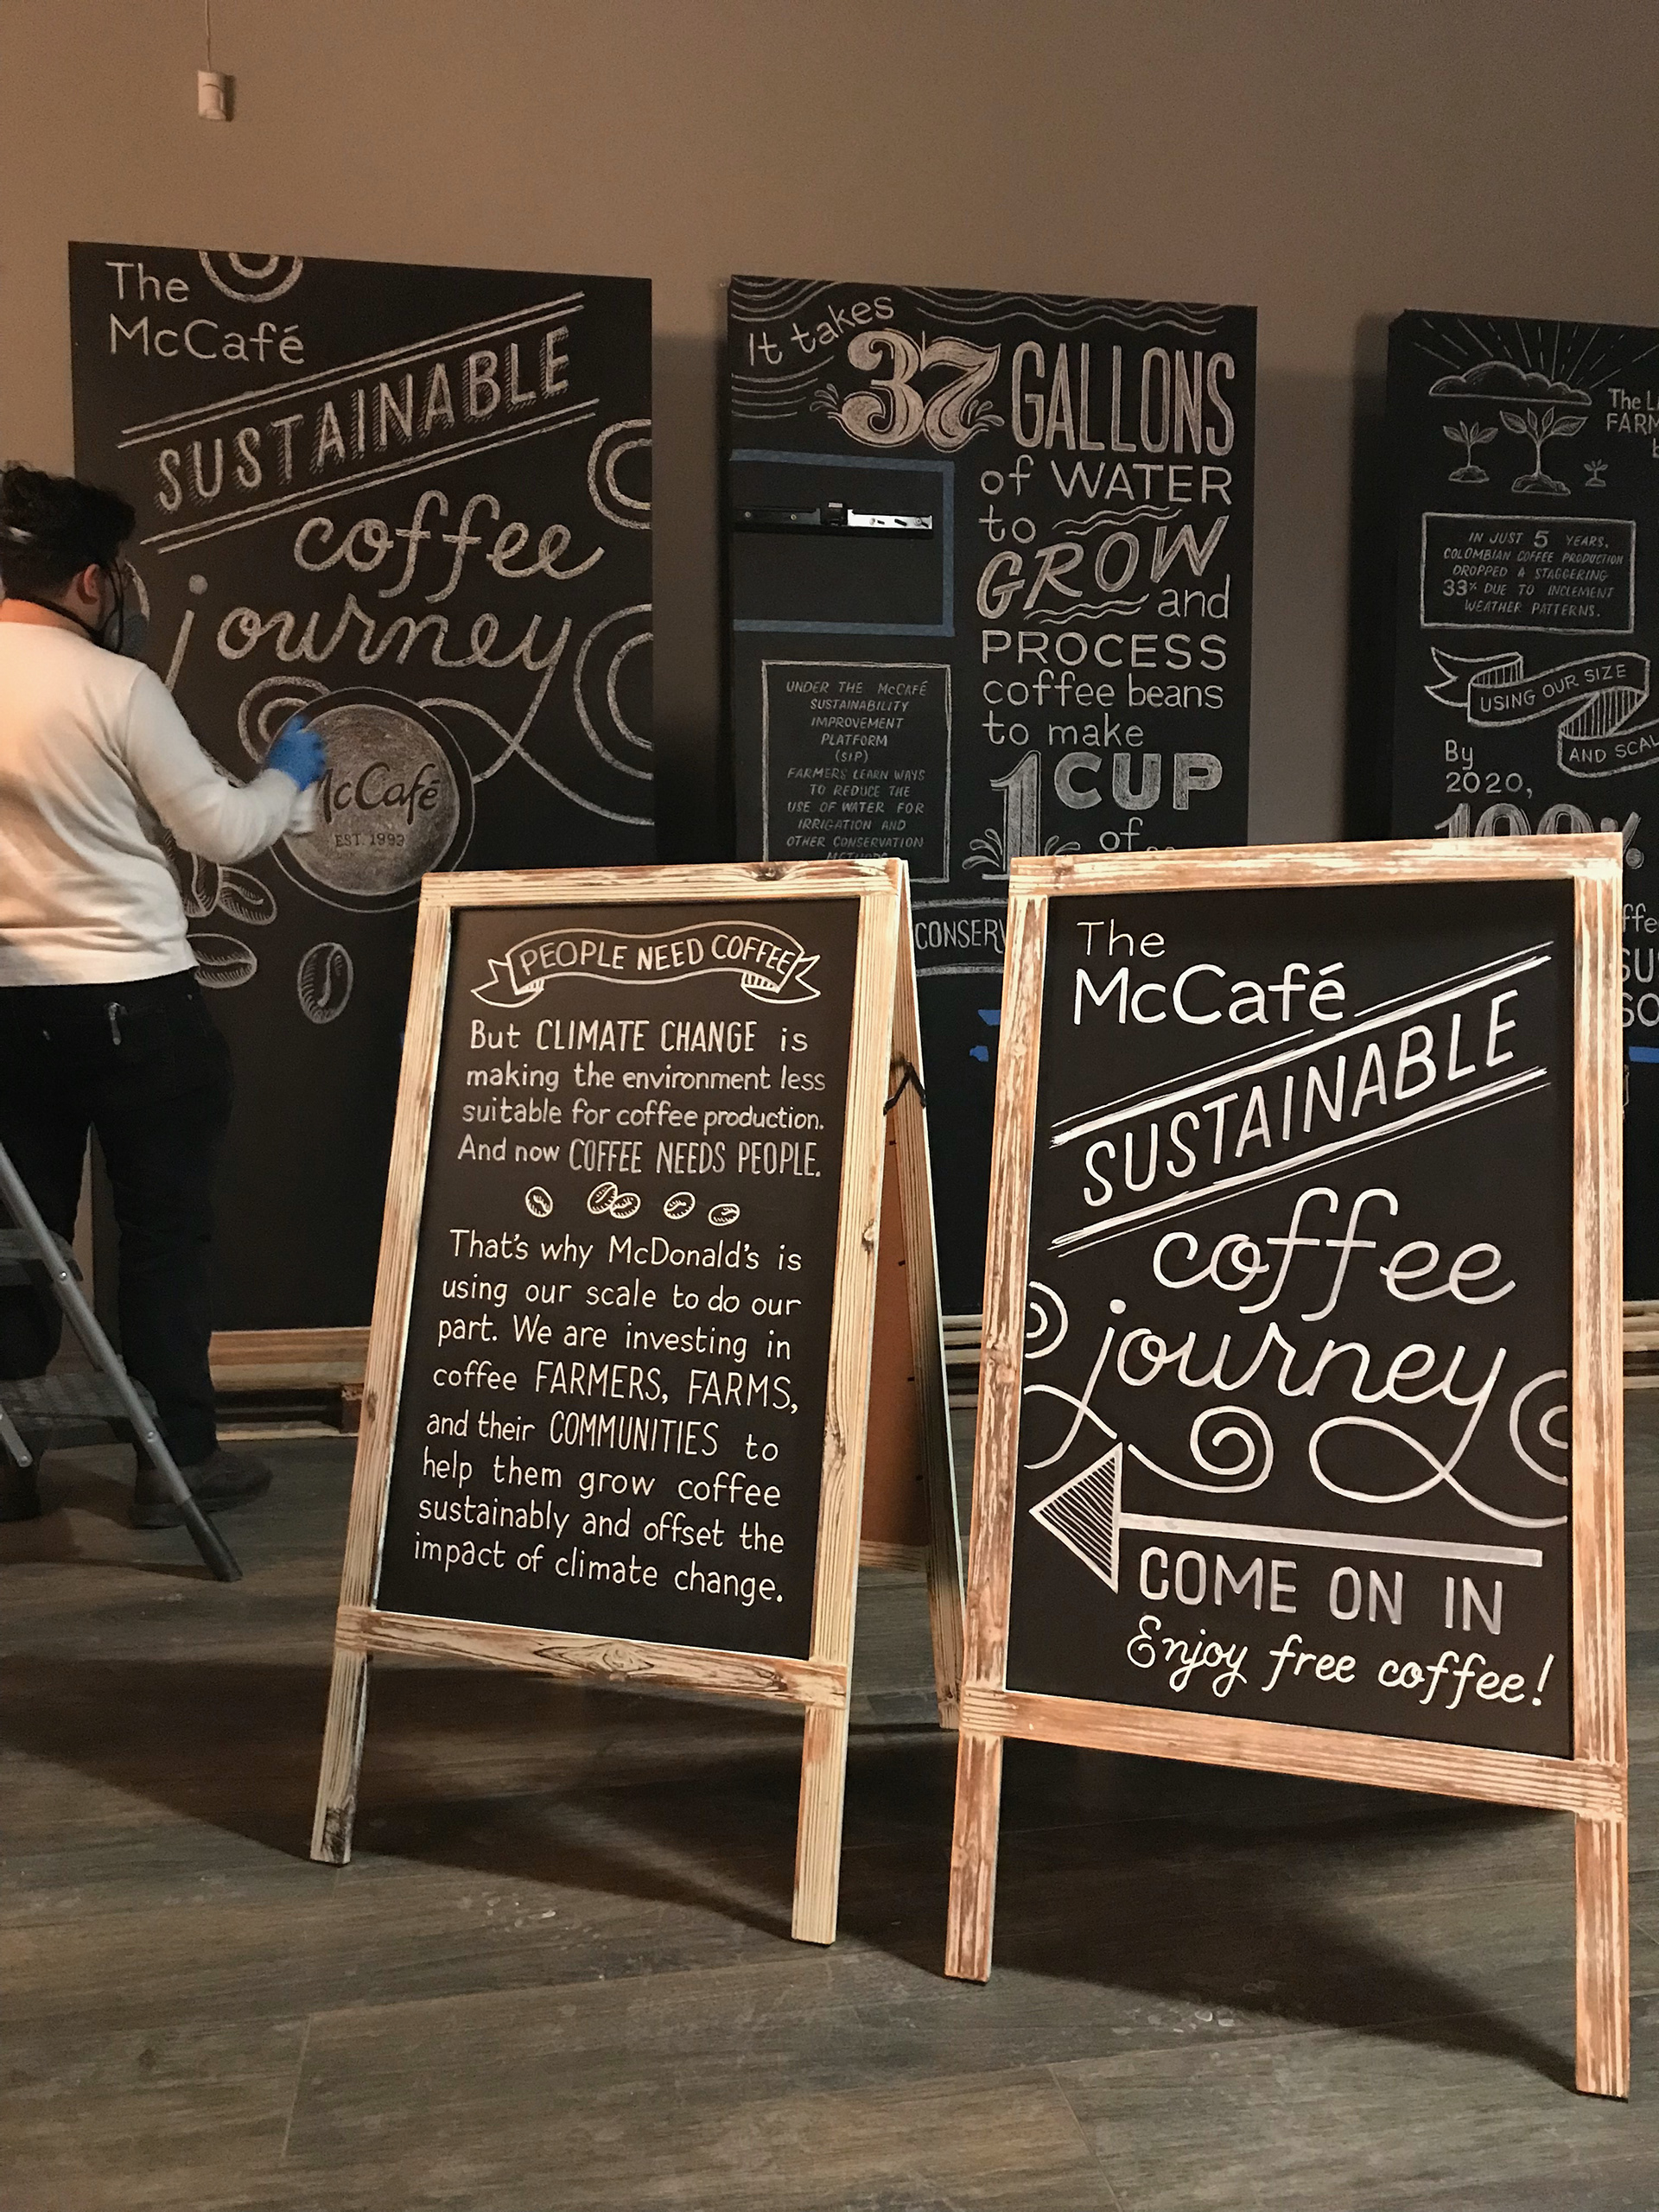 The
McCafé
SUSTAINABLE
coffee
journey
McCafé
EST. 1993
It takes
37 GALLONS
of WATER
to
GROW
and
PROCESS
coffee beans
to make
1 CUP
of
UNDER THE McCAFÉ
SUSTAINABILITY
IMPROVEMENT
PLATFORM
(SIP)
FARMERS LEARN WAYS
TO REDUCE THE
USE OF WATER FOR
IRRIGATION AND
OTHER CONSERVATION
METHODS
The
IN JUST 5 YEARS,
COLOMBIAN COFFEE PRODUCTION
DROPPED A STAGGERING
33% DUE TO INCLEMENT
WEATHER PATTERNS.
USING OUR SIZE
AND
By
2020,
100%
PEOPLE NEED COFFEE
But CLIMATE CHANGE is
making the environment less
suitable for coffee production.
And now COFFEE NEEDS PEOPLE.
That's why McDonald's is
using our scale to do our
part. We are investing in
coffee FARMERS, FARMS,
and their COMMUNITIES to
help them grow coffee
sustainably and offset the
impact of climate change.
The
McCafé
SUSTAINABLE
coffee
journey
COME ON IN
Enjoy free coffee!